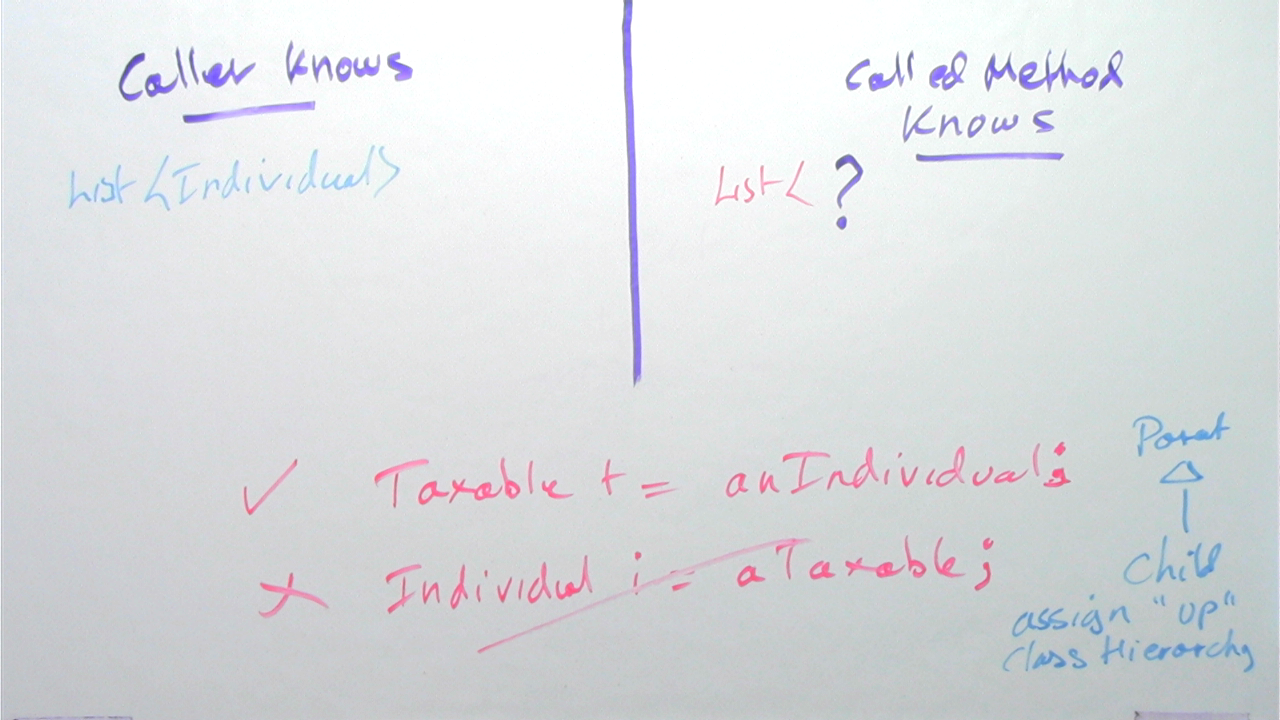 Caller Knows
List<Individual>
Called Method
Knows
List< ?
✓ Taxable t = anIndividual;
✗ Individual i = aTaxable;
Parent
Child
assign "up"
Class Hierarchy